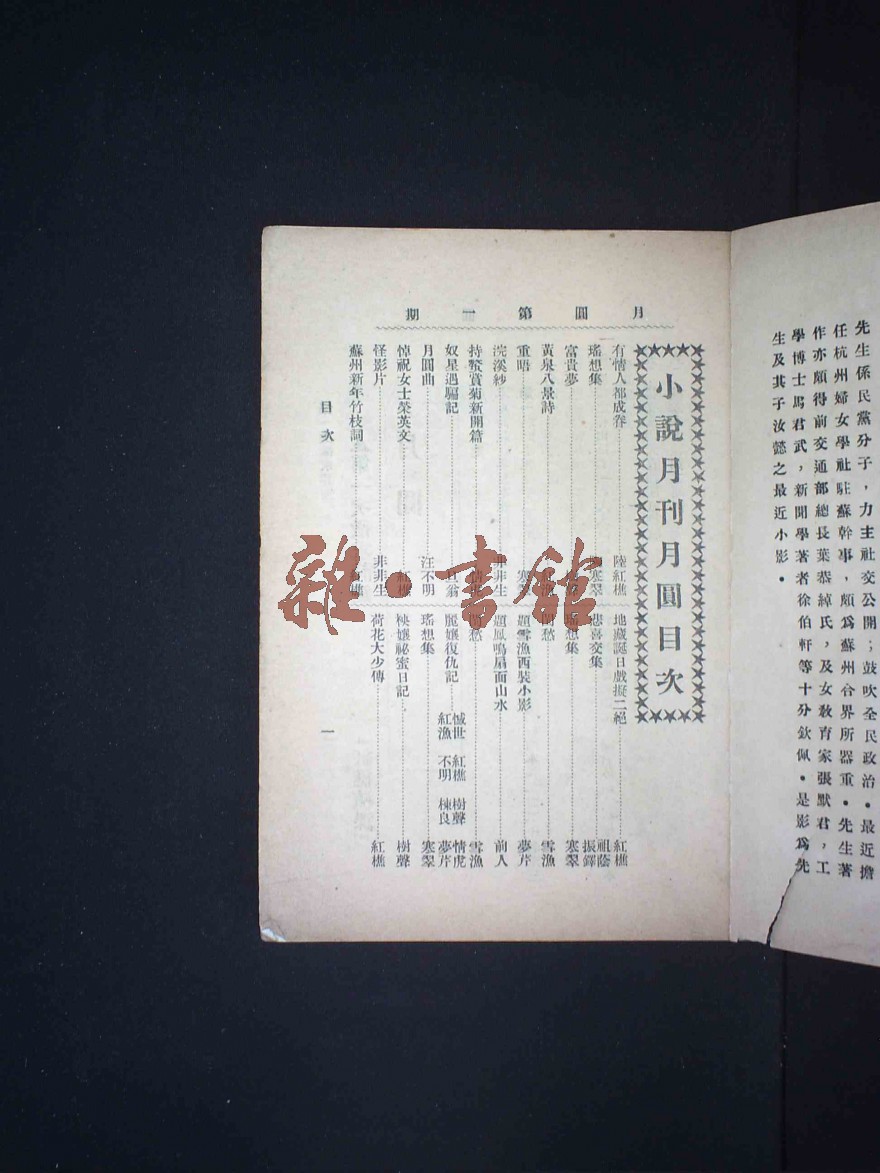 先生係民黨分子，力主社交公開；鼓吹全民政治．最近擔
任杭州婦女學社駐蘇幹事，頗爲蘇州各界所器重．先生著
作亦頗得前交通部總長葉恭綽氏，及女敎育家張默君，工
學博士馬君武，新聞學著者徐伯軒等十分欽佩．是影爲先
生及其子汝懿之最近小影．
月圓第一期
小說月刊月圓目次
有情人都成眷 陸紅樵
瑤想集 寒翠
富貴夢
黃泉八景詩
重晤 寒
浣溪紗 非非生
持螯賞菊新開篇
奴星遇騙記 旦翁
月圓曲 汪不明
悼祝女士榮英文 紅樵
怪影片 非非生
蘇州新年竹枝詞 紅樵
地藏誕日戲擬二絕 紅樵
悲喜交集 祖蔭 振鐸
瑤想集 寒翠
愁 雪漁
題雪漁西裝小影 夢芹
題鳳鳴扇面山水 前人
愁 雪漁
麗孃復仇記 憾世 紅樵 樹聲 情虎 紅漁 不明 棟良 夢芹
瑤想集 寒翠
秧孃祕蜜日記 樹聲
荷花大少傳 紅樵
目次
一
雜·書館